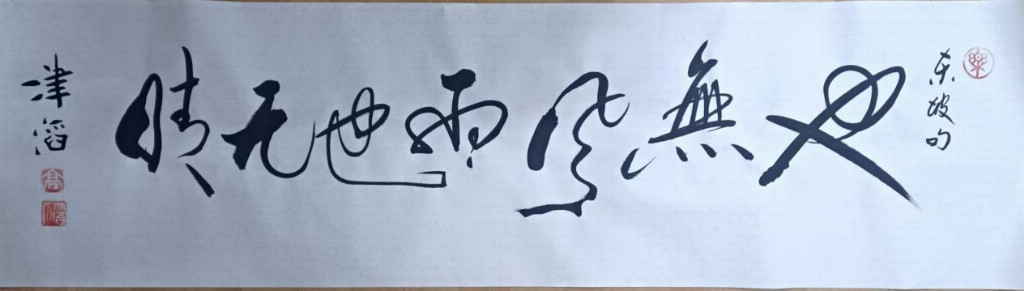 东坡句
也無風雨也无晴
津滔